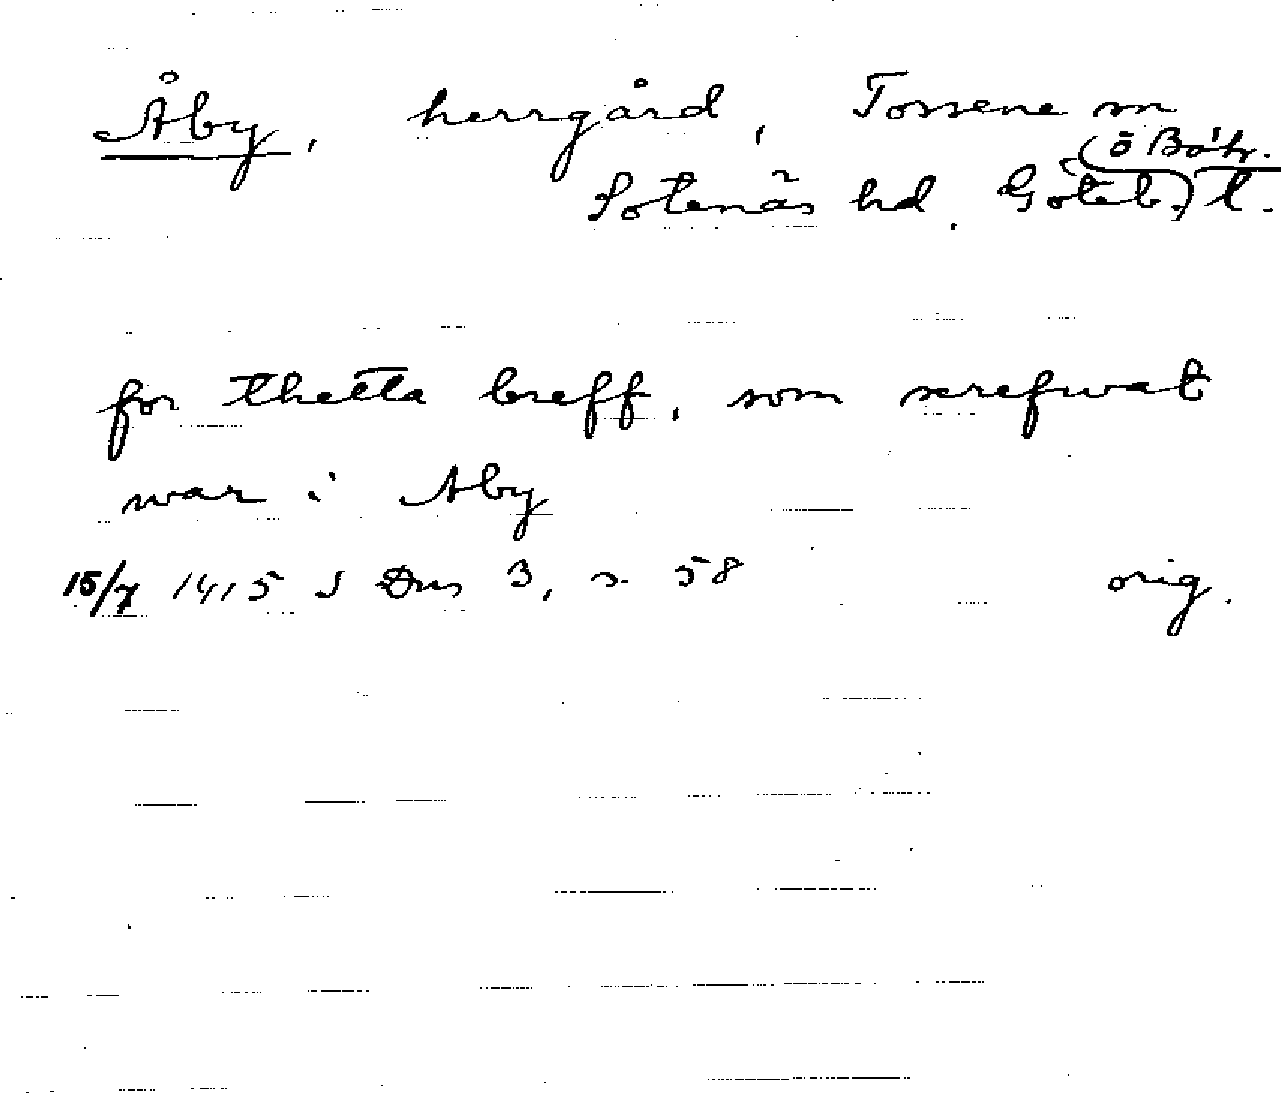 Åby, herrgård, Tossene sn
(o Boh.
Sotenäs hd. Göteb.) l.
for thetta breff, som screfwat
war i Aby
15/7 1415 S Dns 3, s. 58 orig.